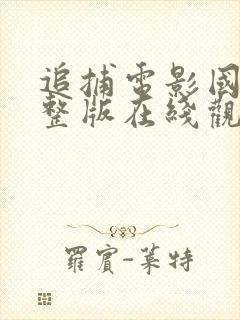 追捕電影國
整版在綫觀
羅賓-萊特